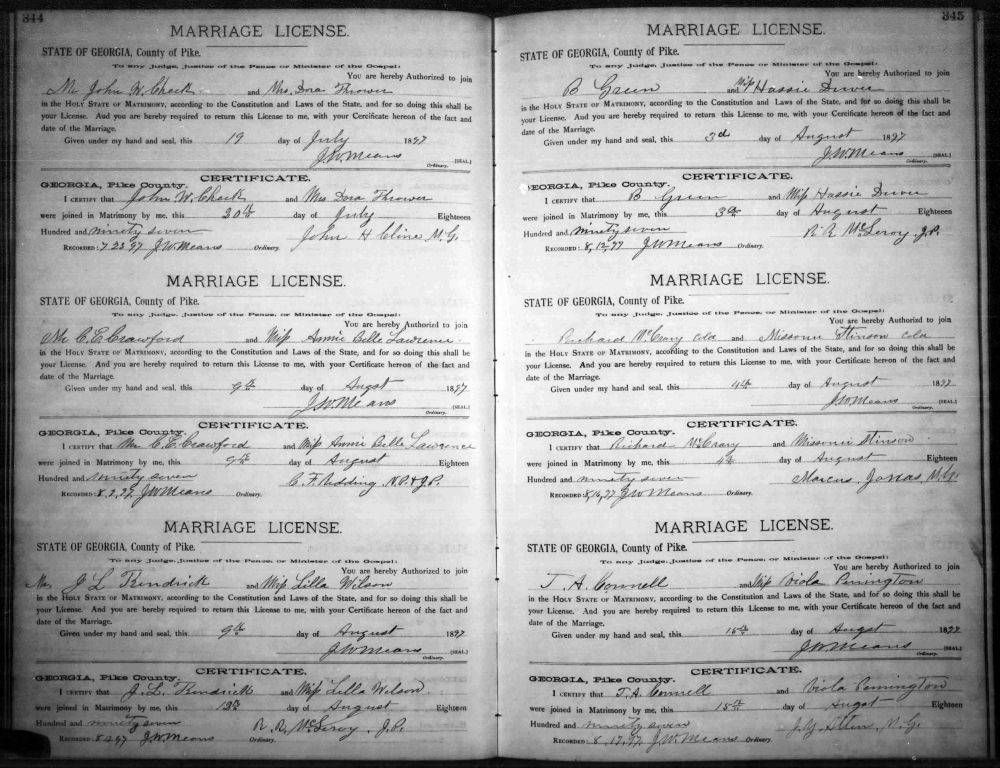 344
MARRIAGE LICENSE.
STATE OF GEORGIA, County of Pike.
To any Judge, Justice of the Peace, or Minister of the Gospel:
You are hereby Authorized to join
Mr John W. Cheek and Mrs. Dora Thrower
in the HOLY STATE OF MATRIMONY, according to the Constitution and Laws of the State, and for so doing this shall be
your License. And you are hereby required to return this License to me, with your Certificate hereon of the fact and
date of the Marriage.
Given under my hand and seal, this 19 day of July 1897
J.W. Means [SEAL.]
Ordinary.
CERTIFICATE.
GEORGIA, Pike County.
I CERTIFY that John W. Cheek and Mrs Dora Thrower
were joined in Matrimony by me, this 20th day of July Eighteen
Hundred and ninety seven John H Cline M.G.
RECORDED: 7 23 97 J.W. Means Ordinary.
MARRIAGE LICENSE.
STATE OF GEORGIA, County of Pike.
To any Judge, Justice of the Peace, or Minister of the Gospel:
You are hereby Authorized to join
Mr C. E. Crawford and Miss Annie Belle Lawrence
in the HOLY STATE OF MATRIMONY, according to the Constitution and Laws of the State, and for so doing this shall be
your License. And you are hereby required to return this License to me, with your Certificate hereon of the fact and
date of the Marriage.
Given under my hand and seal, this 9th day of Augst 1897
J.W. Means [SEAL.]
Ordinary.
CERTIFICATE.
GEORGIA, Pike County.
I CERTIFY that Mr C. E. Crawford and Miss Annie Belle Lawrence
were joined in Matrimony by me, this 9th day of August Eighteen
Hundred and ninety seven C. F. Redding N.P. & J.P.
RECORDED: J.W. Means Ordinary.
MARRIAGE LICENSE.
STATE OF GEORGIA, County of Pike.
To any Judge, Justice of the Peace, or Minister of the Gospel:
You are hereby Authorized to join
Mr J L Kendrick and Miss Lilla Wilson
in the HOLY STATE OF MATRIMONY, according to the Constitution and Laws of the State, and for so doing this shall be
your License. And you are hereby required to return this License to me, with your Certificate hereon of the fact and
date of the Marriage.
Given under my hand and seal, this 9th day of August 1897
J.W. Means [SEAL.]
Ordinary.
CERTIFICATE.
GEORGIA, Pike County.
I CERTIFY that J. L. Kendrick and Miss Lilla Wilson
were joined in Matrimony by me, this 12th day of August Eighteen
Hundred and ninety seven R. R. McLeroy, J.P.
RECORDED: J.W. Means Ordinary.
345
MARRIAGE LICENSE.
STATE OF GEORGIA, County of Pike.
To any Judge, Justice of the Peace, or Minister of the Gospel:
You are hereby Authorized to join
B Green and Miss Hassie Driver
in the HOLY STATE OF MATRIMONY, according to the Constitution and Laws of the State, and for so doing this shall be
your License. And you are hereby required to return this License to me, with your Certificate hereon of the fact and
date of the Marriage.
Given under my hand and seal, this 3d day of August 1897
J.W. Means [SEAL.]
Ordinary.
CERTIFICATE.
GEORGIA, Pike County.
I CERTIFY that B Green and Miss Hassie Driver
were joined in Matrimony by me, this 3d day of August Eighteen
Hundred and ninety seven R R McLeroy J.P.
RECORDED: 8, 12, 97 J.W. Means Ordinary.
MARRIAGE LICENSE.
STATE OF GEORGIA, County of Pike.
To any Judge, Justice of the Peace, or Minister of the Gospel:
You are hereby Authorized to join
Richard McCrary cold and Missouri Stinson cold
in the HOLY STATE OF MATRIMONY, according to the Constitution and Laws of the State, and for so doing this shall be
your License. And you are hereby required to return this License to me, with your Certificate hereon of the fact and
date of the Marriage.
Given under my hand and seal, this 4th day of August 1897
J.W. Means [SEAL.]
Ordinary.
CERTIFICATE.
GEORGIA, Pike County.
I CERTIFY that Richard McCrary and Missouri Stinson
were joined in Matrimony by me, this 4th day of August Eighteen
Hundred and ninety seven Marcus Jonas M.G.
RECORDED: 8, 16, 97 J.W. Means Ordinary.
MARRIAGE LICENSE.
STATE OF GEORGIA, County of Pike.
To any Judge, Justice of the Peace, or Minister of the Gospel:
You are hereby Authorized to join
T. A. Connell and Miss Viola Penington
in the HOLY STATE OF MATRIMONY, according to the Constitution and Laws of the State, and for so doing this shall be
your License. And you are hereby required to return this License to me, with your Certificate hereon of the fact and
date of the Marriage.
Given under my hand and seal, this 15th day of Augst 1897
J.W. Means [SEAL.]
Ordinary.
CERTIFICATE.
GEORGIA, Pike County.
I CERTIFY that T. A. Connell and Viola Penington
were joined in Matrimony by me, this 15th day of Augst Eighteen
Hundred and ninety seven
RECORDED: 8, 17, 97 J.W. Means Ordinary.